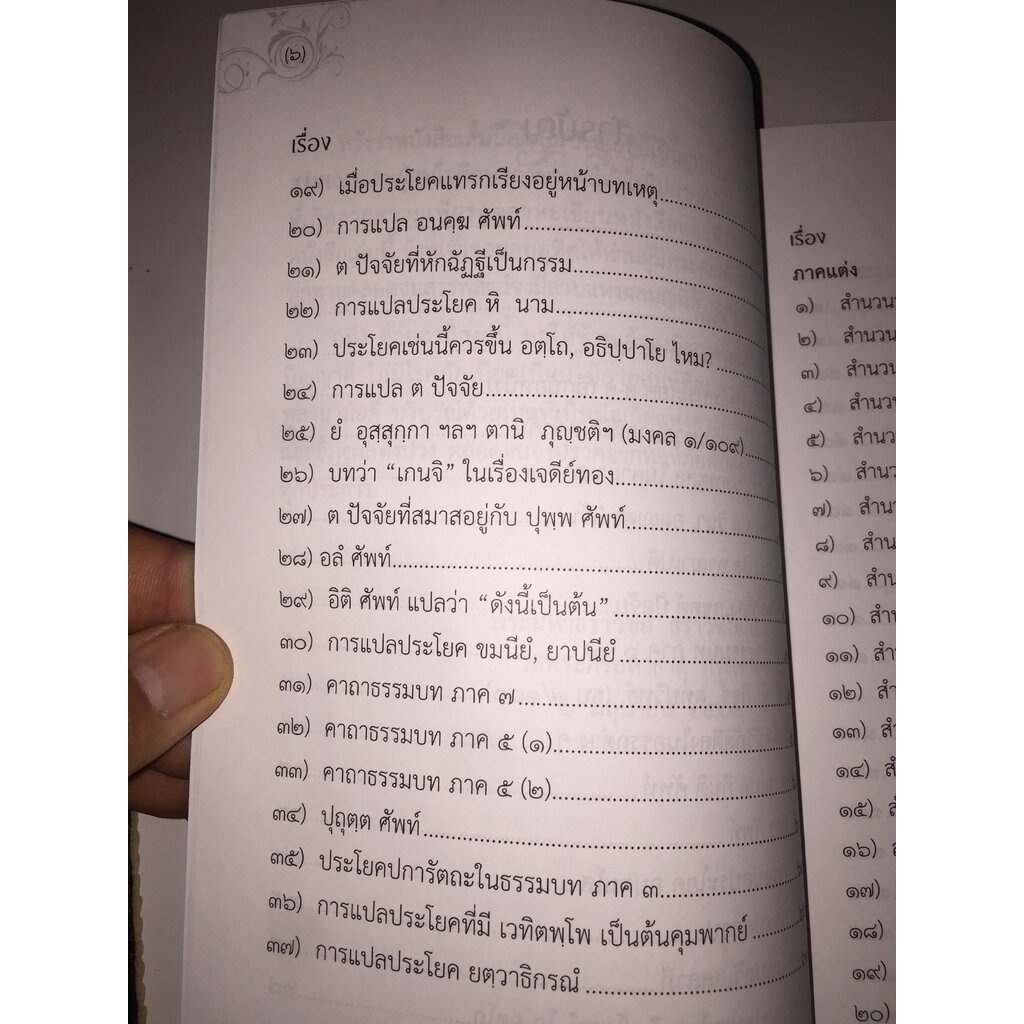 (๖)
เรื่อง
๑๙) เมื่อประโยคแทรกเรียงอยู่หน้าบทเหตุ
๒๐) การแปล อนคฺฆ ศัพท์
๒๑) ต ปัจจัยที่หักฉัฏฐีเป็นกรรม
๒๒) การแปลประโยค หิ นาม
๒๓) ประโยคเช่นนี้ควรขึ้น อตฺโถ, อธิปฺปาโย ไหม?
๒๔) การแปล ต ปัจจัย
๒๕) ยํ อุสฺสุกฺกา ฯลฯ ตานิ ภุญฺชติฯ (มงคล ๑/๑๐๙)
๒๖) บทว่า “เกนจิ” ในเรื่องเจดีย์ทอง
๒๗) ต ปัจจัยที่สมาสอยู่กับ ปุพฺพ ศัพท์
๒๘) อลํ ศัพท์
๒๙) อิติ ศัพท์ แปลว่า “ดังนี้เป็นต้น”
๓๐) การแปลประโยค ขมนียํ, ยาปนียํ
๓๑) คาถาธรรมบท ภาค ๗
๓๒) คาถาธรรมบท ภาค ๕ (๑)
๓๓) คาถาธรรมบท ภาค ๕ (๒)
๓๔) ปุถุตฺต ศัพท์
๓๕) ประโยคปการัตถะในธรรมบท ภาค ๓
๓๖) การแปลประโยคที่มี เวทิตพฺโพ เป็นต้นคุมพากย์
๓๗) การแปลประโยค ยตฺวาธิกรณํ
เรื่อง
ภาคแต่ง
๑) สำนวน
๒) สำนวน
๓) สำนวน
๔) สำนวน
๕) สำนวน
๖) สำนวน
๗) สำนวน
๘) สำน
๙) สำน
๑๐) สำน
๑๑) สำน
๑๒) สำ
๑๓) สำ
๑๔) สำ
๑๕) สำ
๑๖)
๑๗)
๑๘)
๑๙)
๒๐)